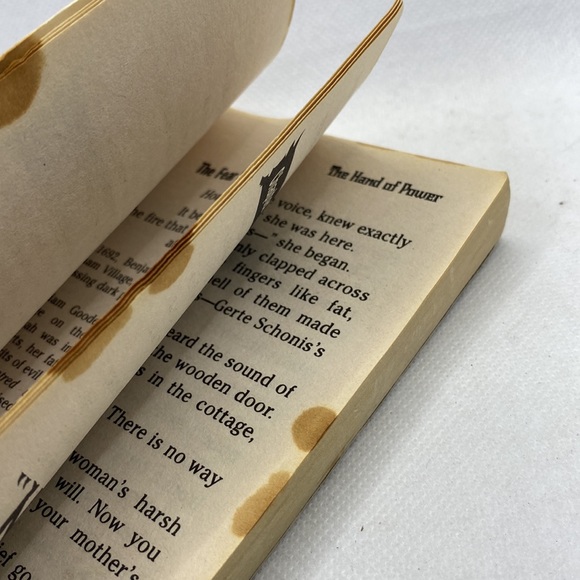 The Fear
It b
he fire that
1692. Benja
am Village,
ssing dark
am Good
e on the
ah was in
ts, her fa
its of evil
The Hand of Power
voice, knew exactly
she was here.
s—" she began.
nly clapped across
fingers like fat,
ell of them made
—Gerte Schonis's
eard the sound of
he wooden door.
s in the cottage,
There is no way
woman's harsh
will. Now you
your mother's
ief go